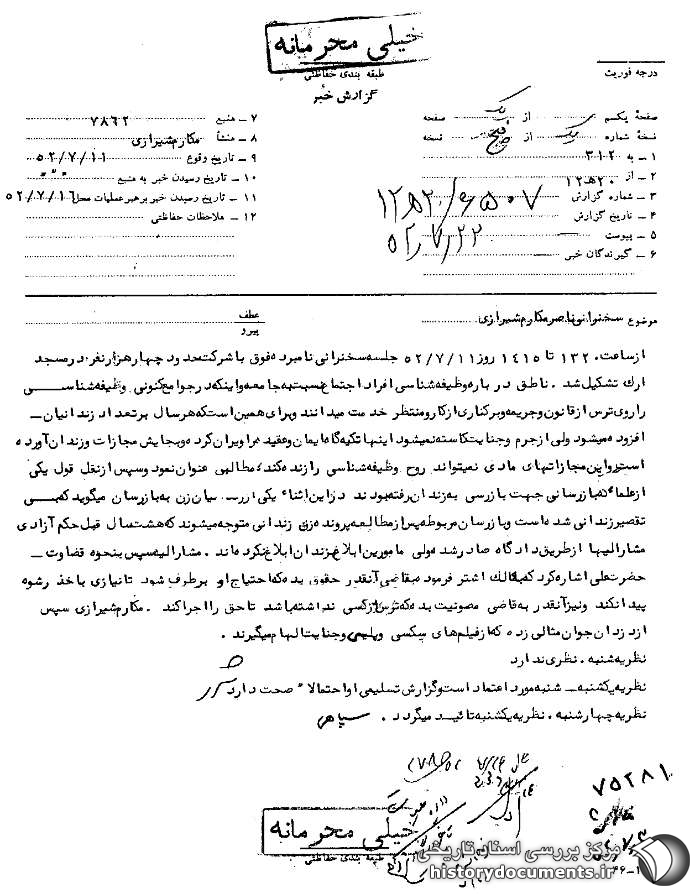 خیلی محرمانه
طبقه بندی حفاظتی
گزارش خبر
درجه فوریت
صفحهٔ یکم از یک صفحه
نسخهٔ شماره یک از پنج نسخه
۱ ـ به ۳۱۲
۲ ـ از ۲۰ھ۱۲
۳ ـ شماره گزارش
۴ ـ تاریخ گزارش ۵۲/۷/۲۲
۵ ـ پیوست
۶ ـ گیرندگان خبر
۷ ـ منبع ۷۸۶۲
۸ ـ منشأ مکارم شیرازی
۹ ـ تاریخ وقوع ۵۲/۷/۱۱
۱۰ ـ تاریخ رسیدن خبر به منبع
۱۱ ـ تاریخ رسیدن خبر برهبر عملیات محل ۵۲/۷/۱۶
۱۲ ـ ملاحظات حفاظتی
موضوع سخنرانی ناصر مکارم شیرازی
عطف
پیرو
ازساعت ۱۳۲۰ تا ۱۴۱۵ روز ۵۲/۷/۱۱ جلسه سخنرانی نامبرده فوق با شرکت حدود چهار هزار نفر در مسجد
ارك تشکیل شد . ناطق درباره وظیفه شناسی افراد اجتماع نسبت به جامعه و اینکه در جوامع کنونی وظیفه شناسی
را روی ترس از قانون و جریمه و برکناری از کار و منتظر خدمت میدانند و برای همین است که هر سال بر تعداد زندانیان ـ
افزوده میشود ولی از جرم و جنایت کاسته نمیشود اینها تکیه گاه ایمان و عقیده را ویران کرده و بجایش مجازات و زندان آورده
است و این مجازاتهای مادی نمیتواند روح وظیفه شناسی را زنده کند ، مطالبی عنوان نمود و سپس از نقل قول یکی
از علما که بازرسانی جهت بازرسی به زندان رفته بودند در این اثناء یکی از زنان به بازرسان میگوید که بی
تقصیر زندانی شده است و بازرسان مربوطه پس از مطالعه پرونده زن زندانی متوجه میشوند که هشت سال قبل حکم آزادی
مشارالیها از طریق دادگاه صادر شده ولی مامورین ابلاغ زندان ابلاغ نکرده اند . مشارالیه سپس بنحوه قضاوت ـ
حضرت علی اشاره کرد که به مالك اشتر فرموده به قاضی آنقدر حقوق بده که احتیاج او برطرف شود تا نیازی باخذ رشوه
پیدا نکند و نیز آنقدر به قاضی مصونیت بده که ترس از کسی نداشته باشد تا حق را اجرا کند . مکارم شیرازی سپس
از دزدان جوان مثالی زده که از فیلم های سکسی و پلیسی و جنایت الهام میگیرند .
نظریه شنبه . نظری ندارد
نظریه یکشنبه ـ شنبه مورد اعتماد است و گزارش تسلیمی او احتمالاً صحت دارد
نظریه چهارشنبه . نظریه یکشنبه تائید میگردد . سپاهی
۷۵۲۸۱
خیلی محرمانه
طبقه بندی حفاظتی
مرکز بررسی اسناد تاریخی
historydocuments.ir